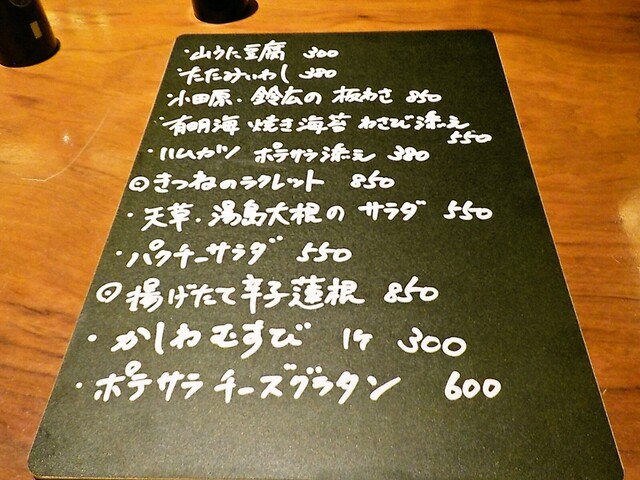 ・山うに豆腐 300
・たたみいわし 380
・小田原・鈴広の板わさ 850
・有明海 焼き海苔 わさび添え
550
・ハムカツ ポテサラ添え 380
◎きつねのラクレット 850
・天草・湯島大根のサラダ 550
・パクチーサラダ 550
◎揚げたて辛子蓮根 850
・かしわむすび 1ケ 300
・ポテサラチーズグラタン 600